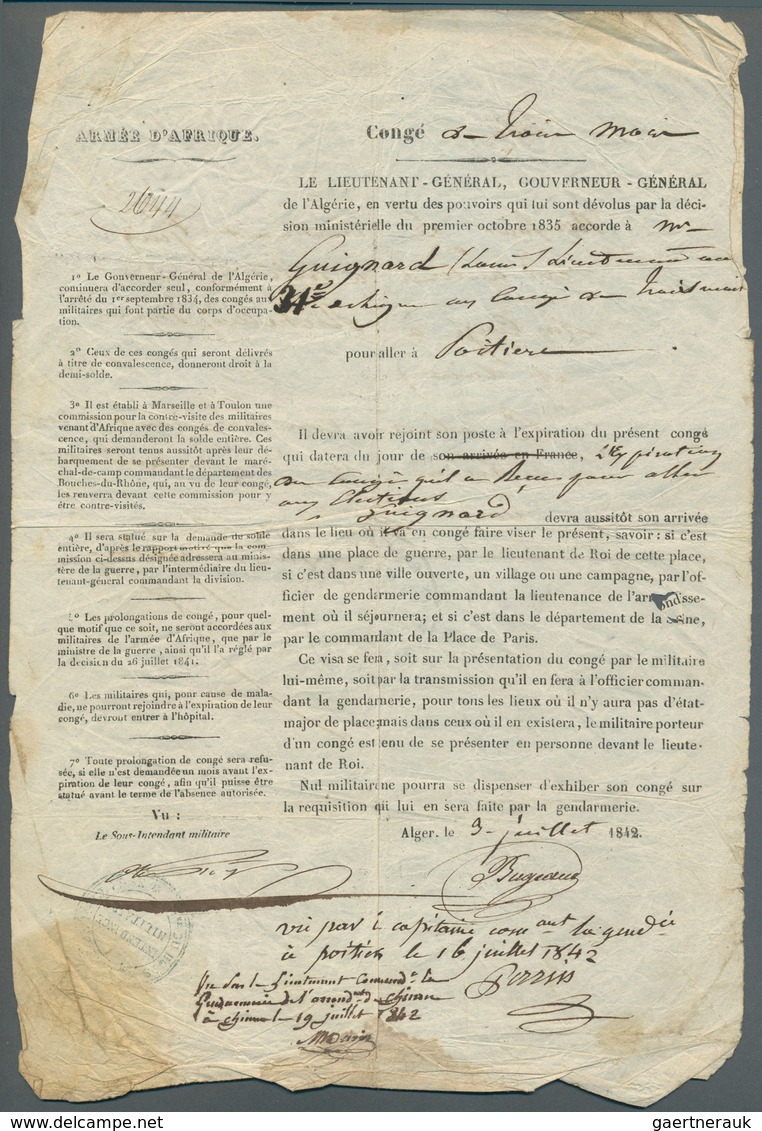 ARMÉE D'AFRIQUE.
2644
1º Le Gouverneur-Général de l'Algérie,
continuera d'accorder seul, conformément à
l'arrêté du 1er septembre 1834, des congés aux
militaires qui font partie du corps d'occupa-
tion.
2º Ceux de ces congés qui seront délivrés
à titre de convalescence, donneront droit à la
demi-solde.
3º Il est établi à Marseille et à Toulon une
commission pour la contre-visite des militaires
venant d'Afrique avec des congés de convales-
cence, qui demanderont la solde entière. Ces
militaires seront tenus aussitôt après leur dé-
barquement de se présenter devant le maré-
chal-de-camp commandant le département des
Bouches-du-Rhône, qui, au vu de leur congé,
les renverra devant cette commission pour y
être contre-visités.
4º Il sera statué sur la demande de solde
entière, d'après le rapport motivé que la com-
mission ci-dessus désignée adressera au minis-
tère de la guerre, par l'intermédiaire du lieu-
tenant-général commandant la division.
5º Les prolongations de congé, pour quel-
que motif que ce soit, ne seront accordées aux
militaires de l'armée d'Afrique, que par le
ministre de la guerre, ainsi qu'il l'a réglé par
la décision du 26 juillet 1841.
6º Les militaires qui, pour cause de mala-
die, ne pourront rejoindre à l'expiration de leur
congé, devront entrer à l'hôpital.
7º Toute prolongation de congé sera refu-
sée, si elle n'est demandée un mois avant l'ex-
piration de leur congé, afin qu'il puisse être
statué avant le terme de l'absence autorisée.
Vu :
Le Sous-Intendant militaire
Congé de trois mois
LE LIEUTENANT-GÉNÉRAL, GOUVERNEUR-GÉNÉRAL
de l'Algérie, en vertu des pouvoirs qui lui sont dévolus par la déci-
sion ministérielle du premier octobre 1835 accorde à Mr
Guignard (Louis) Lieutenant au
34e un congé de trois mois
pour aller à Poitiers
Il devra avoir rejoint son poste à l'expiration du présent congé
qui datera du jour de son arrivée en France, l'expiration
du congé qu'il a reçu pour aller
aux élections
Guignard devra aussitôt son arrivée
dans le lieu où il va en congé faire viser le présent, savoir : si c'est
dans une place de guerre, par le lieutenant de Roi de cette place,
si c'est dans une ville ouverte, un village ou une campagne, par l'of-
ficier de gendarmerie commandant la lieutenance de l'arrondisse-
ment où il séjournera; et si c'est dans le département de la Seine,
par le commandant de la Place de Paris.
Ce visa se fera, soit sur la présentation du congé par le militaire
lui-même, soit par la transmission qu'il en fera à l'officier comman-
dant la gendarmerie, pour tous les lieux où il n'y aura pas d'état-
major de place; mais dans ceux où il en existera, le militaire porteur
d'un congé est tenu de se présenter en personne devant le lieute-
nant de Roi.
Nul militaire ne pourra se dispenser d'exhiber son congé sur
la requisition qui lui en sera faite par la gendarmerie.
Alger, le 3 juillet 1842.
Bugeaud
vu par le capitaine comant la gendie
à poitiers le 16 juillet 1842
Perrin
Vu par le Lieutenant Command. la
Gendarmerie de l'arrondt de Chinon
à Chinon le 19 juillet 1842
gaertnerauk